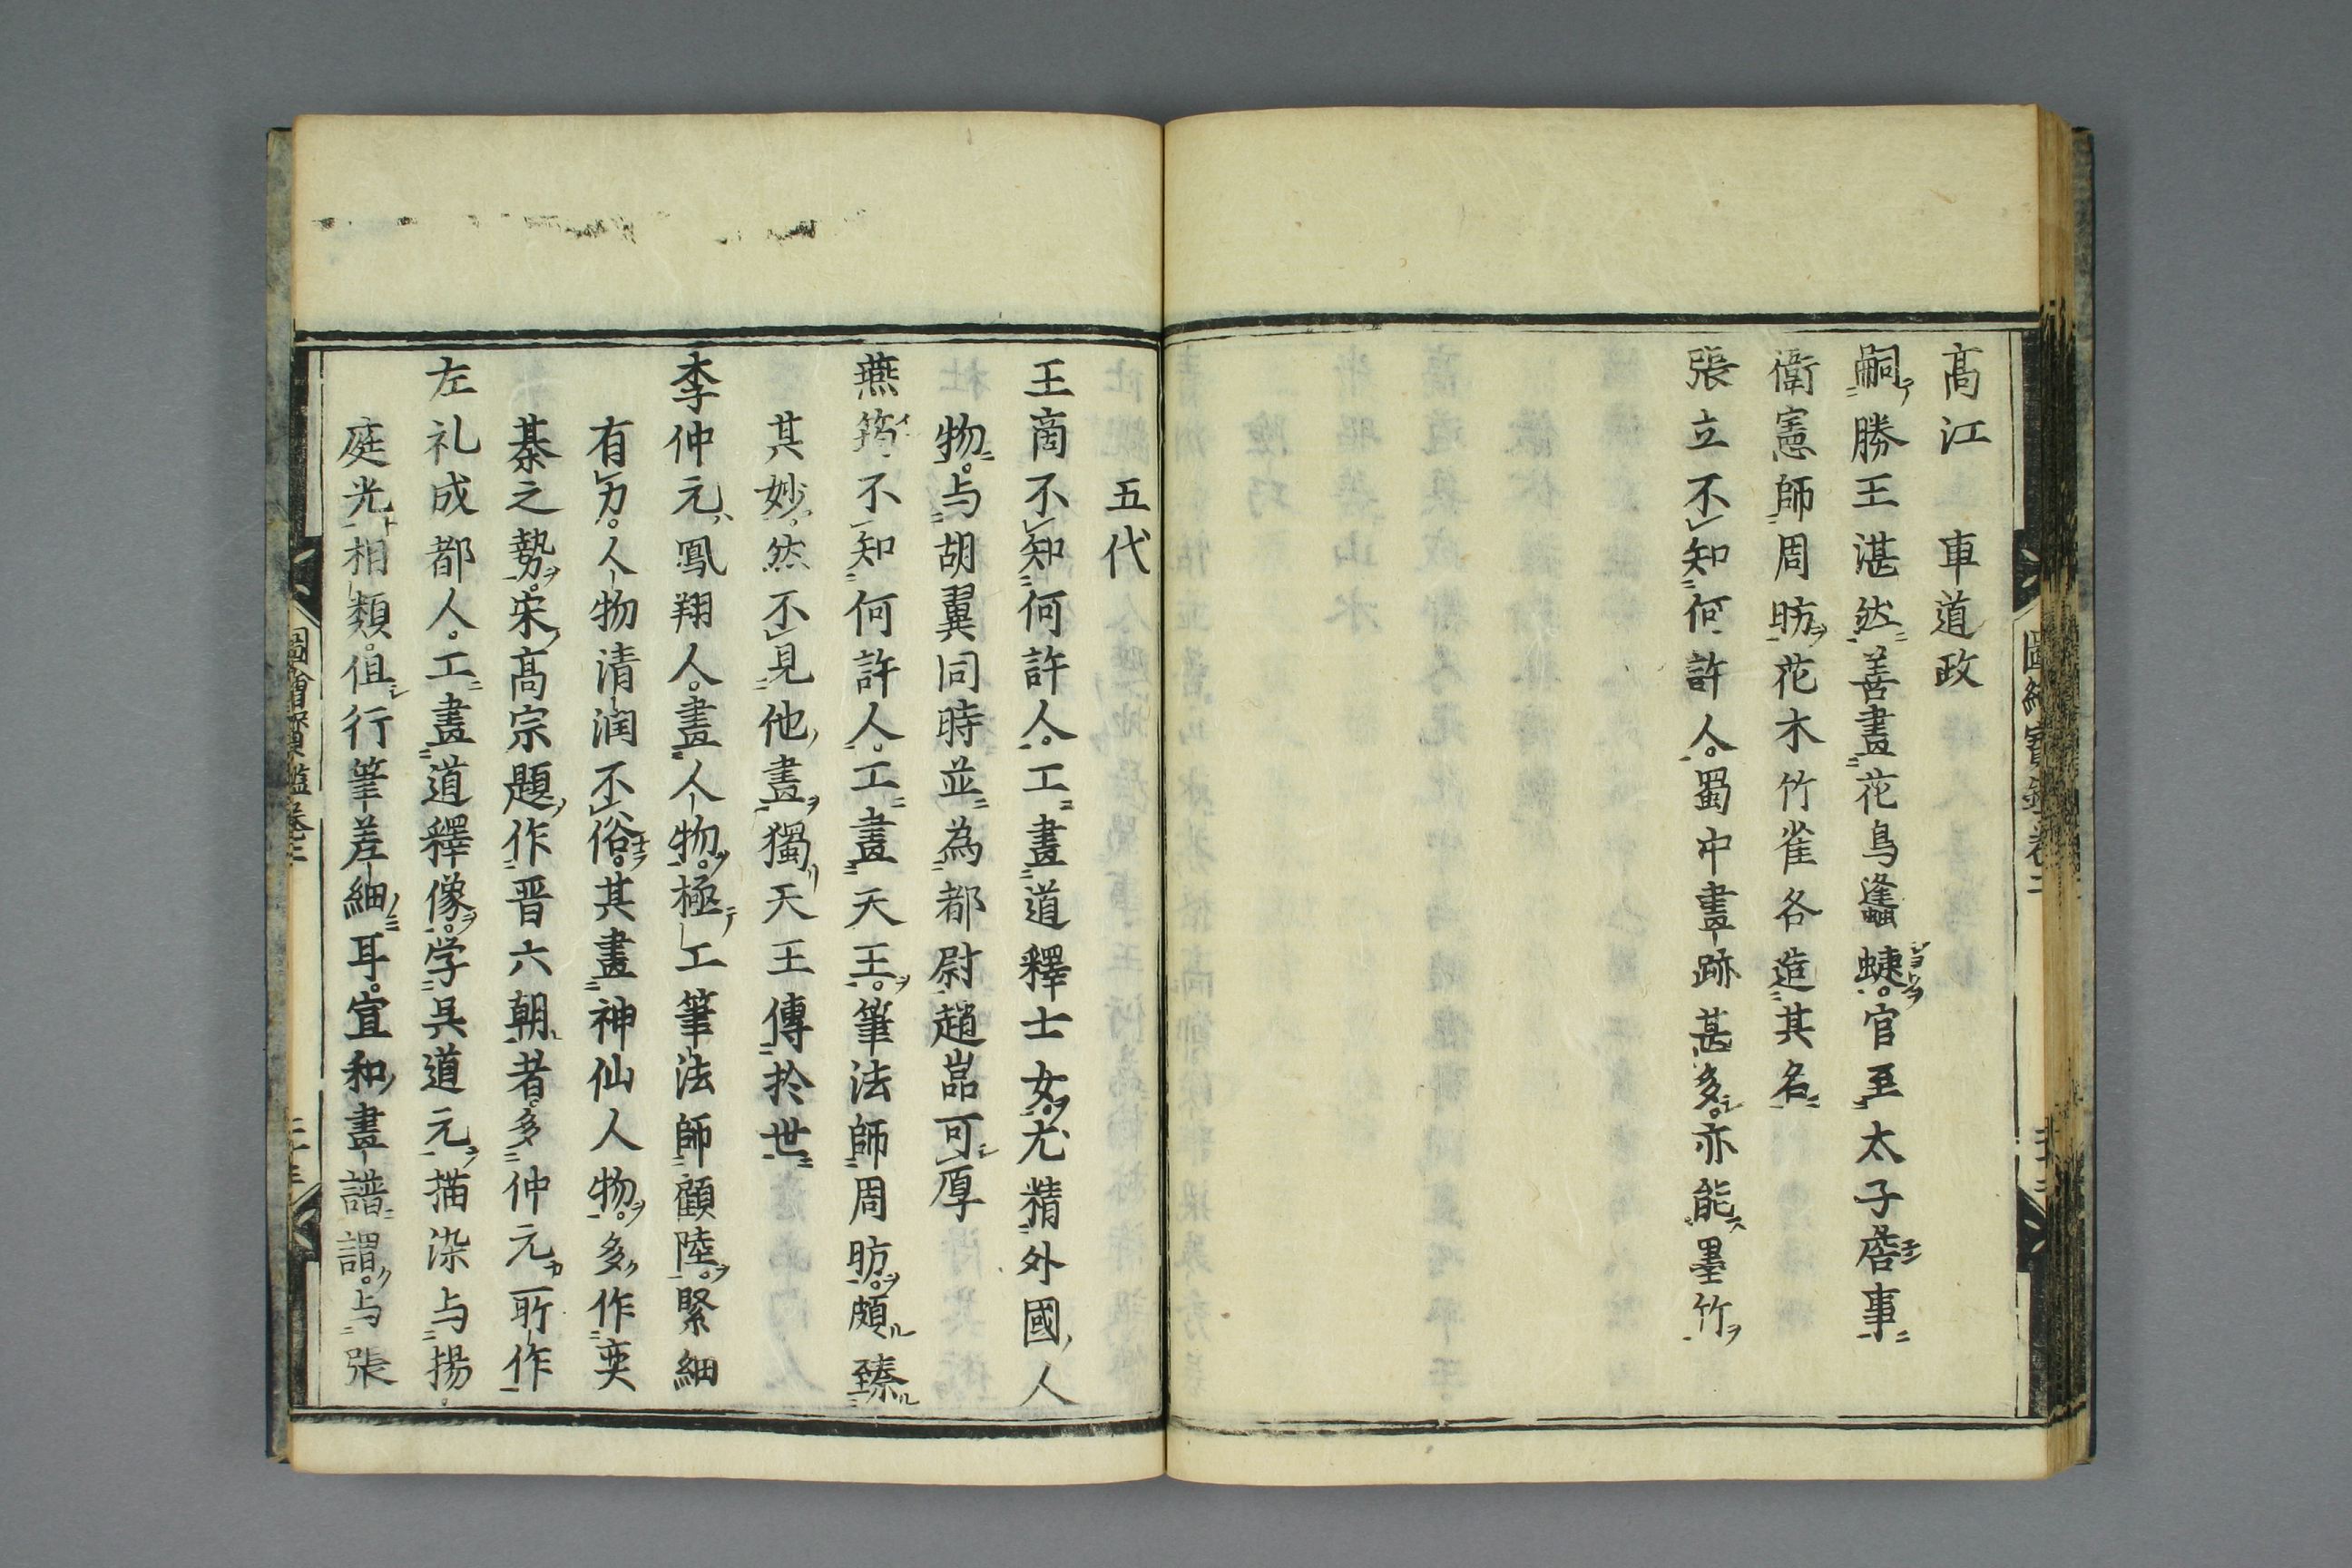 高江　車道政
嗣勝王湛然善畫花鳥蜂蜨官至太子詹事
衛憲師周昉花木竹雀各造其名
張立不知何許人蜀中畫跡甚多亦能墨竹
五代
王商不知何許人工畫道釋士女尤精外國人
物与胡翼同時並為都尉趙嵓可厚
燕筠不知何許人工畫天王筆法師周昉頗臻
其妙然不見他畫獨天王傳於世
李仲元鳳翔人畫人物極工筆法師顧陸緊細
有力人物清潤不俗其畫神仙人物多作奕
棊之勢宋高宗題作晋六朝者多仲元所作
左礼成都人工畫道釋像学吳道元描染与揚
庭光相類但行筆差細耳宣和畫譜謂与張
圖繪寶鑑卷二